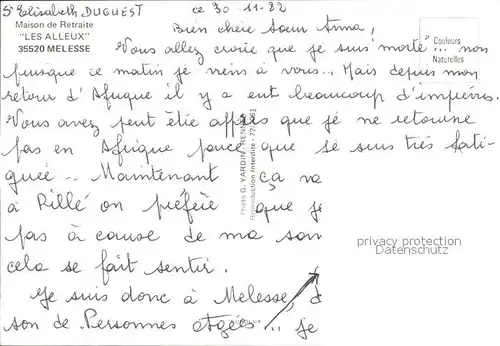 Sr Elisabeth DUGUEST ce 30-11-82
Maison de Retraite
"LES ALLEUX"
35520 MELESSE
Couleurs
Naturelles
Bien chère Sœur Anna,
Vous allez croire que je suis "morte"... non
puisque ce matin je viens à vous... Mais depuis mon
retour d'Afrique il y a eut beaucoup d'imprévus.
Vous avez peut être appris que je ne retourne
pas en Afrique parce que je suis très fati-
guée... Maintenant ça va
à Rillé on préfère que je
pas à cause de ma san
cela se fait sentir.
Je suis donc à Melesse, d
son de Personnes âgées... je
Photo G. YARDIN, RENNES
Reproduction Interdite
privacy protection
Datenschutz